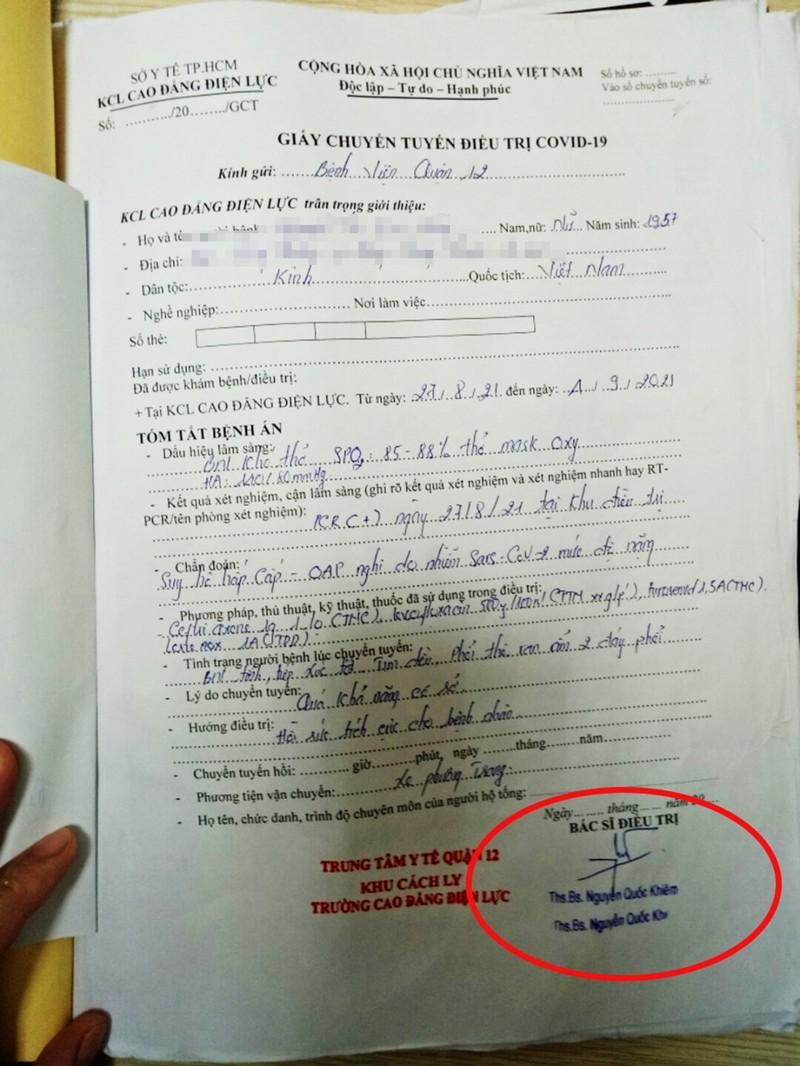 SỞ Y TẾ TP.HCM
KCL CAO ĐẲNG ĐIỆN LỰC
Số: ........../20......../GCT
CỘNG HÒA XÃ HỘI CHỦ NGHĨA VIỆT NAM
Độc lập – Tự do – Hạnh phúc
Số hồ sơ: ..........
Vào sổ chuyển tuyến số:
....................
GIẤY CHUYỂN TUYẾN ĐIỀU TRỊ COVID-19
Kính gửi: Bệnh viện Quận 12
KCL CAO ĐẲNG ĐIỆN LỰC trân trọng giới thiệu:
- Họ và tên Nam,nữ: Nữ Năm sinh: 1957
- Địa chỉ:
- Dân tộc: Kinh Quốc tịch: Việt Nam
- Nghề nghiệp: Nơi làm việc
Số thẻ:
Hạn sử dụng:
Đã được khám bệnh/điều trị:
+ Tại KCL CAO ĐẲNG ĐIỆN LỰC. Từ ngày: 27/8/21 đến ngày: 1/9/2021
TÓM TẮT BỆNH ÁN
- Dấu hiệu lâm sàng:
BN khó thở SPO2: 85-88% thở mask oxy
HA: mmHg
- Kết quả xét nghiệm, cận lâm sàng (ghi rõ kết quả xét nghiệm và xét nghiệm nhanh hay RT-
PCR/tên phòng xét nghiệm): PCR (+) ngày 27/8/21 tại khu điều trị
- Chẩn đoán:
Suy hô hấp cấp - OAP nghi do nhiễm Sars-CoV-2 mức độ nặng
- Phương pháp, thủ thuật, kỹ thuật, thuốc đã sử dụng trong điều trị:
- Tình trạng người bệnh lúc chuyển tuyến:
BN tỉnh, tiếp xúc tốt Tim đều, Phổi thô ran ẩm 2 đáy phổi
- Lý do chuyển tuyến: Quá khả năng cơ sở
- Hướng điều trị:
Hồi sức tích cực cho bệnh nhân
- Chuyển tuyến hồi: .......... giờ........phút, ngày ........tháng........năm........
- Phương tiện vận chuyển: Xe Phương Trang
- Họ tên, chức danh, trình độ chuyên môn của người hộ tống:
Ngày........ tháng........ năm 20....
BÁC SĨ ĐIỀU TRỊ
TRUNG TÂM Y TẾ QUẬN 12
KHU CÁCH LY
TRƯỜNG CAO ĐẲNG ĐIỆN LỰC
Ths.Bs. Nguyễn Quốc Khiêm
Ths.Bs. Nguyễn Quốc Khi